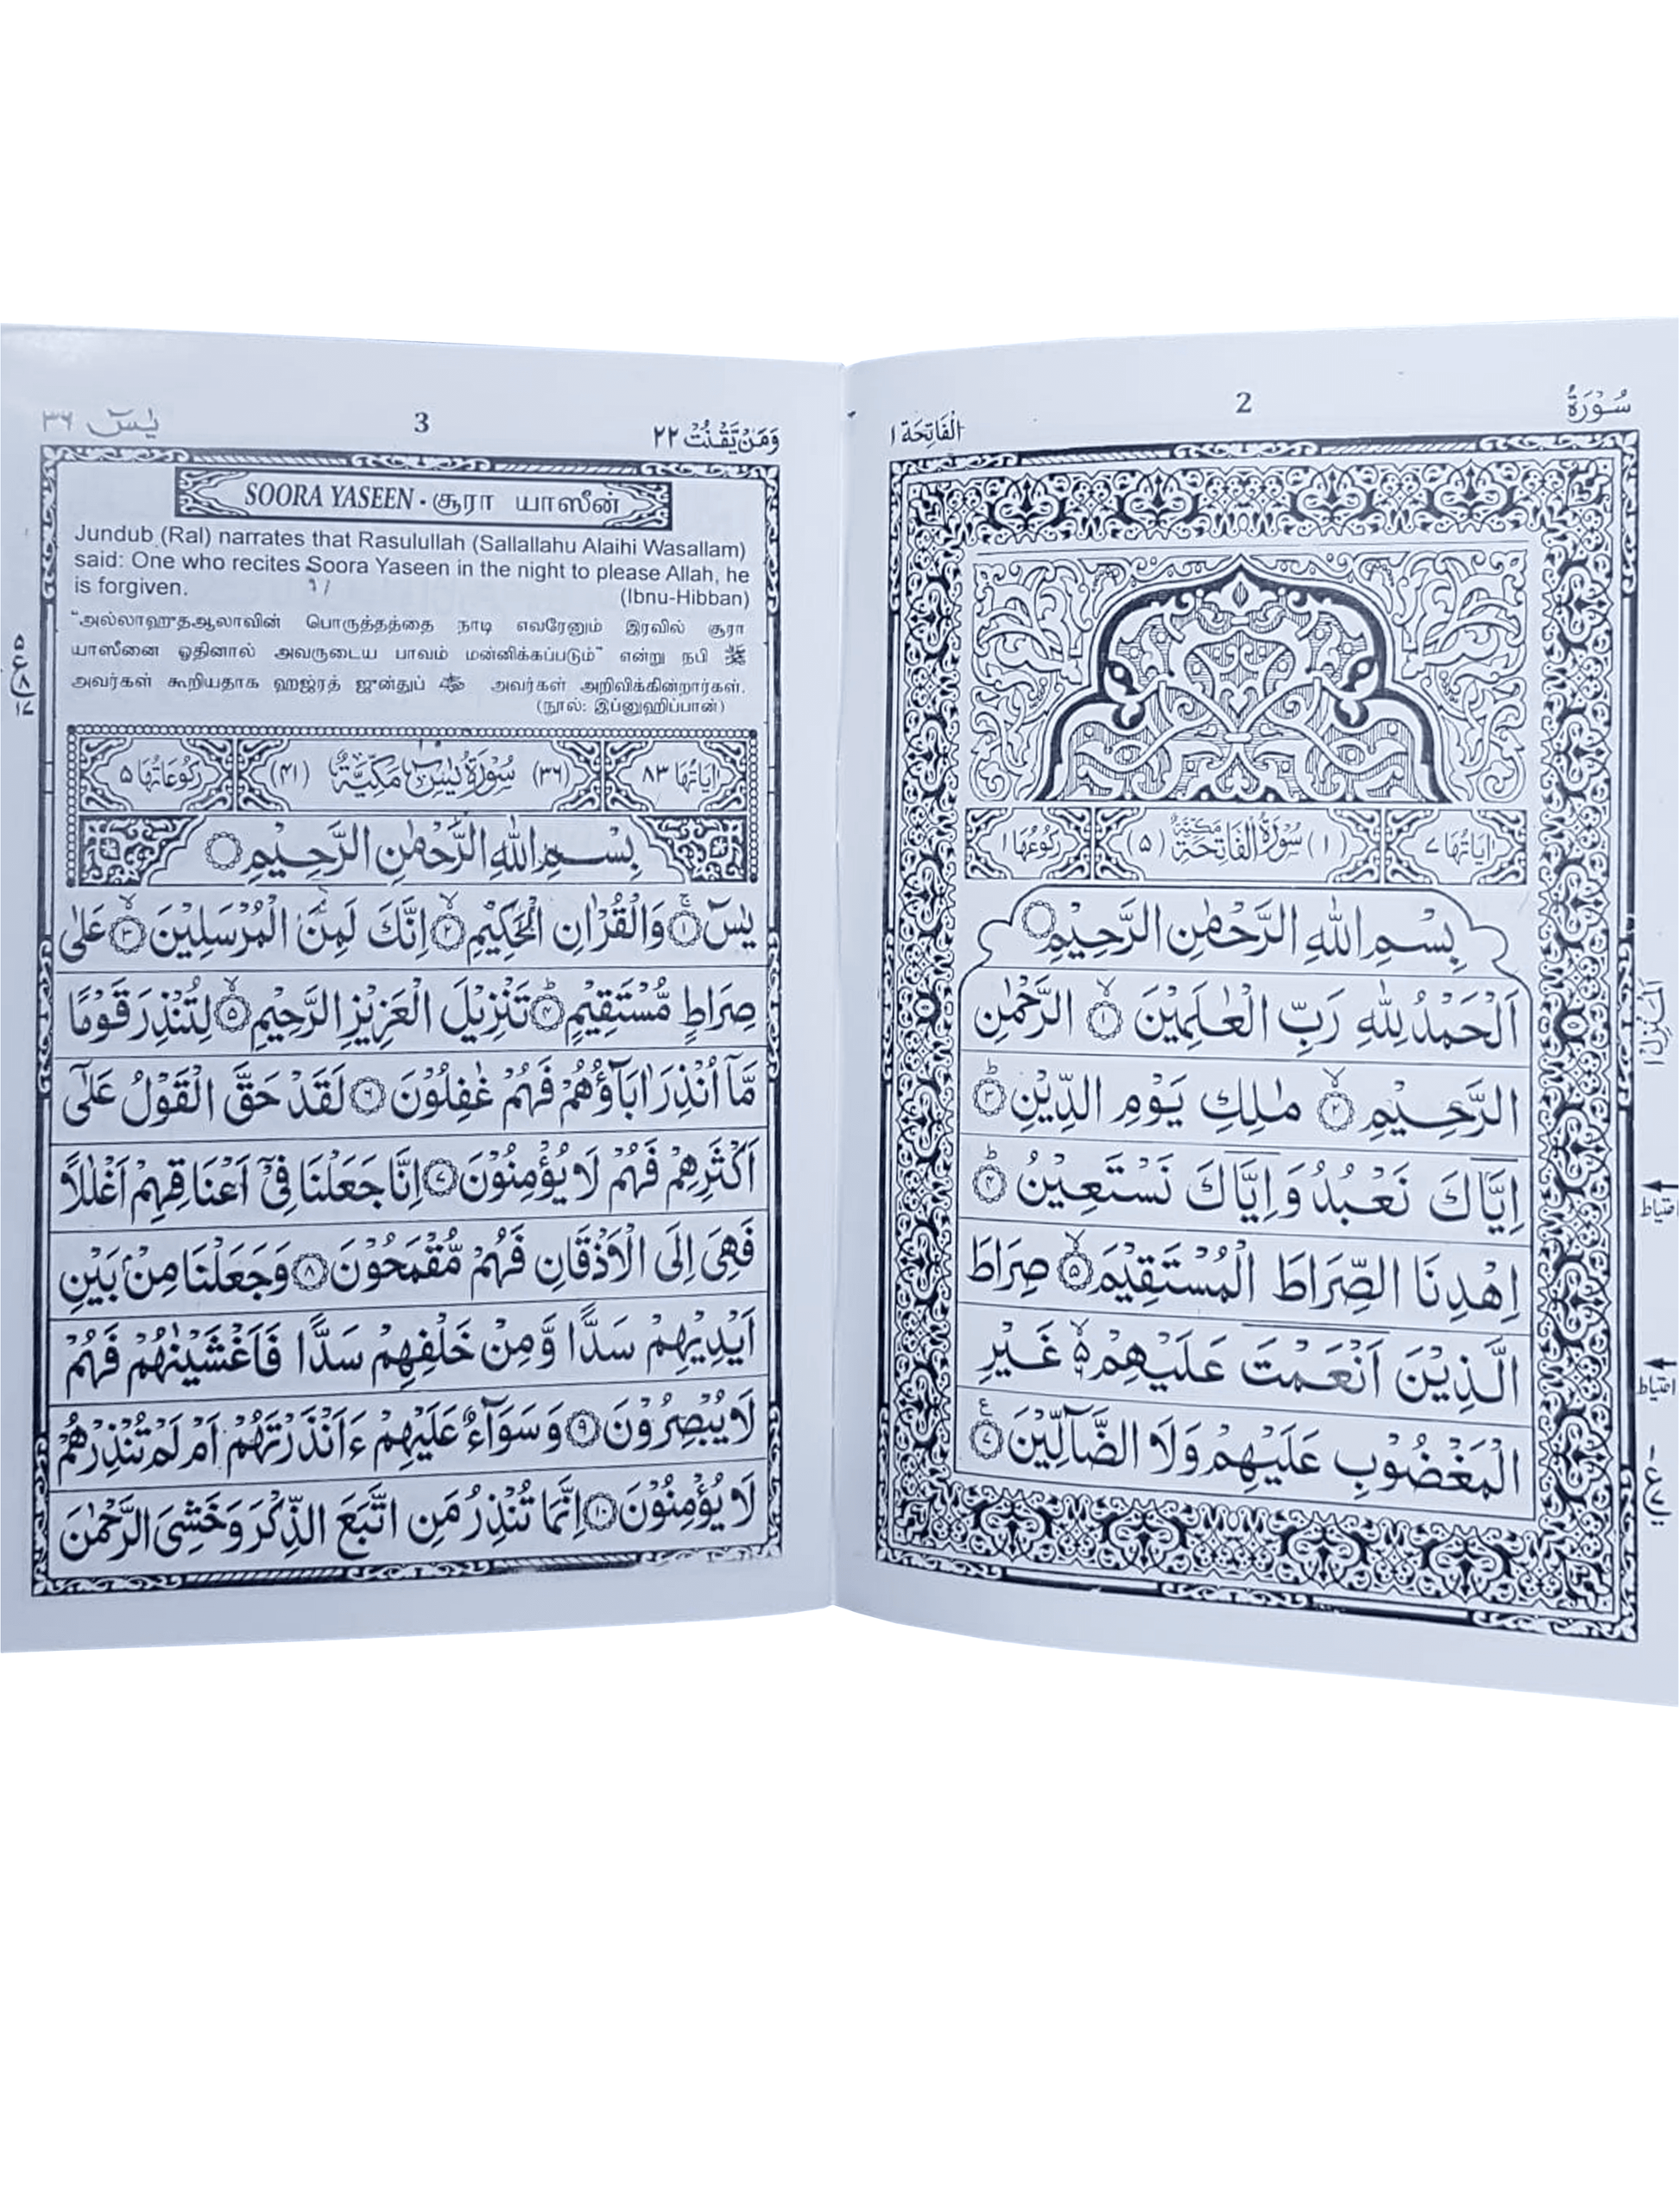 سُوْرَةُ
2
الْفَاتِحَة ١
اٰيَاتُهَا ٧
(١) سُوْرَةُ الْفَاتِحَةِ مَكِّيَّةٌ (٥)
رُكُوْعُهَا ١
بِسْمِ اللّٰهِ الرَّحْمٰنِ الرَّحِيْمِ
اَلْحَمْدُ لِلّٰهِ رَبِّ الْعٰلَمِيْنَ ۙ‏﴿١﴾ الرَّحْمٰنِ
الرَّحِيْمِ ۙ‏﴿٢﴾ مٰلِكِ يَوْمِ الدِّيْنِ ؕ‏﴿٣﴾
اِيَّاكَ نَعْبُدُ وَاِيَّاكَ نَسْتَعِيْنُ ؕ‏﴿٤﴾
اِهْدِنَا الصِّرَاطَ الْمُسْتَقِيْمَ ۙ‏﴿٥﴾ صِرَاطَ
الَّذِيْنَ اَنْعَمْتَ عَلَيْهِمْ ۙ۬ غَيْرِ
الْمَغْضُوْبِ عَلَيْهِمْ وَلَا الضَّآلِّيْنَ ﴿٧﴾
احتياط
احتياط
وَمَنْ يَّقْنُتْ ٢٢
3
يٰسٓ ٣٦
SOORA YASEEN - சூரா யாஸீன்
Jundub (Ral) narrates that Rasulullah (Sallallahu Alaihi Wasallam)
said: One who recites Soora Yaseen in the night to please Allah, he
is forgiven. (Ibnu-Hibban)
"அல்லாஹுதஆலாவின் பொருத்தத்தை நாடி எவரேனும் இரவில் சூரா
யாஸீனை ஓதினால் அவருடைய பாவம் மன்னிக்கப்படும்" என்று நபி ﷺ
அவர்கள் கூறியதாக ஹஜ்ரத் ஜுன்துப் அவர்கள் அறிவிக்கின்றார்கள்.
(நூல்: இப்னுஹிப்பான்)
اٰيَاتُهَا ٨٣
(٣٦) سُوْرَةُ يٰسٓ مَكِّيَّةٌ (٤١)
رُكُوْعَاتُهَا ٥
بِسْمِ اللّٰهِ الرَّحْمٰنِ الرَّحِيْمِ
يٰسٓ ۚ‏﴿١﴾ وَالْقُرْاٰنِ الْحَكِيْمِ ۙ‏﴿٢﴾ اِنَّكَ لَمِنَ الْمُرْسَلِيْنَ ۙ‏﴿٣﴾ عَلٰى
صِرَاطٍ مُّسْتَقِيْمٍ ؕ‏﴿٤﴾ تَنْزِيْلَ الْعَزِيْزِ الرَّحِيْمِ ۙ‏﴿٥﴾ لِتُنْذِرَ قَوْمًا
مَّاۤ اُنْذِرَ اٰبَآؤُهُمْ فَهُمْ غٰفِلُوْنَ ﴿٦﴾ لَقَدْ حَقَّ الْقَوْلُ عَلٰٓى
اَكْثَرِهِمْ فَهُمْ لَا يُؤْمِنُوْنَ ﴿٧﴾ اِنَّا جَعَلْنَا فِيْٓ اَعْنَاقِهِمْ اَغْلٰلًا
فَهِيَ اِلَى الْاَذْقَانِ فَهُمْ مُّقْمَحُوْنَ ﴿٨﴾ وَجَعَلْنَا مِنْۢ بَيْنِ
اَيْدِيْهِمْ سَدًّا وَّمِنْ خَلْفِهِمْ سَدًّا فَاَغْشَيْنٰهُمْ فَهُمْ
لَا يُبْصِرُوْنَ ﴿٩﴾ وَسَوَآءٌ عَلَيْهِمْ ءَاَنْذَرْتَهُمْ اَمْ لَمْ تُنْذِرْهُمْ
لَا يُؤْمِنُوْنَ ﴿١٠﴾ اِنَّمَا تُنْذِرُ مَنِ اتَّبَعَ الذِّكْرَ وَخَشِيَ الرَّحْمٰنَ